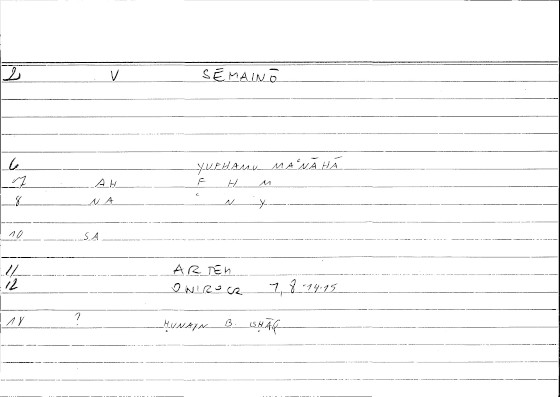 2 V SĒMAINŌ
6 YUFHAMU MAʿNĀHĀ
7 AH F H M
8 NA ʿ N Y
10 SA
11 ARTEM
12 ONIROCR 1, 8.14-15
18 ? ḤUNAYN B. ISḤĀQ